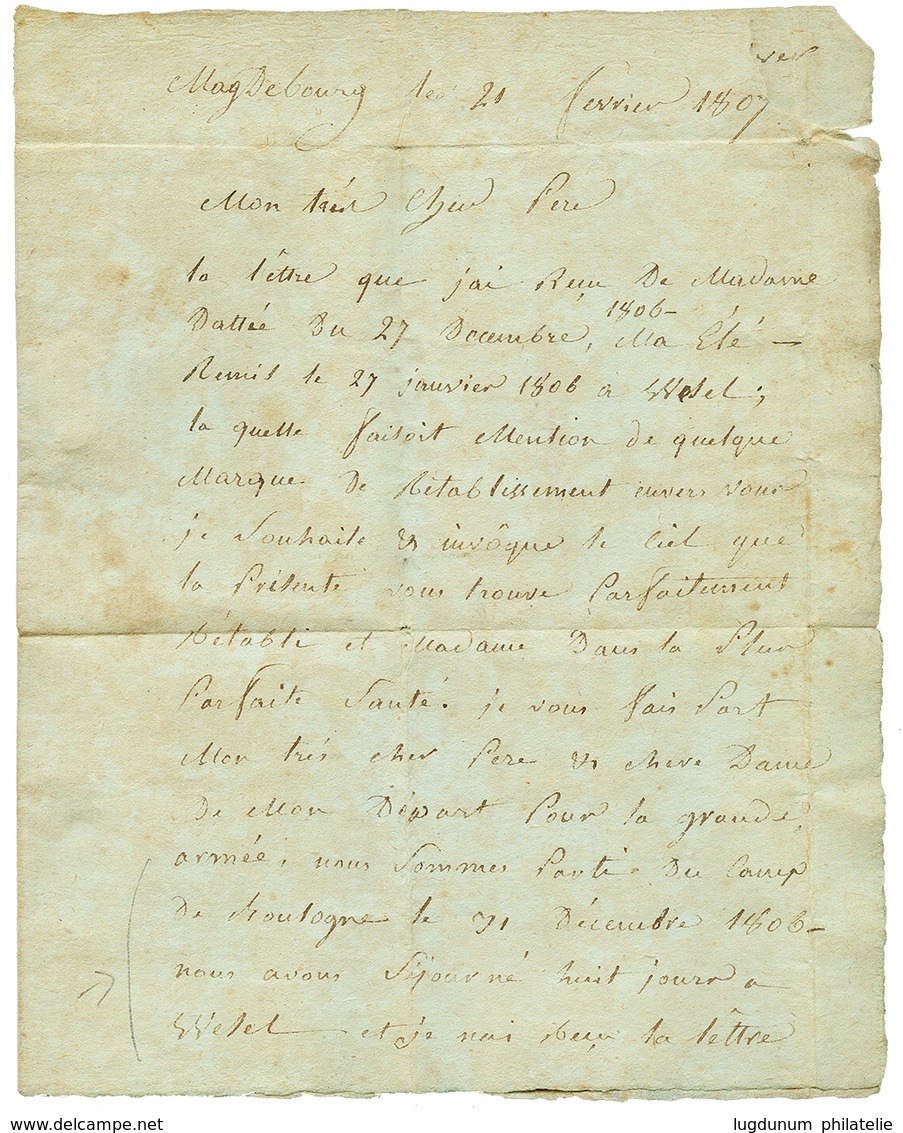 ver
MagDebourg le 21 fevrier 1807
Mon trés Cher Pere
la lêttre que jai Reçu De Madame
Dattée Du 27 Decembre, 1806- Ma Eté —
Remis le 27 janvier 1806 à Wesel;
la quelle faisoit Mention de quelque
Marque De Rétablissement envers vous
je Souhaite & invôque le Ciel que
la Présente vous trouve Parfaitement
Rétabli et Madame Dans la Plus
Parfaite Santé. je vous fais Part
Mon trés cher Pere & chere Dame
De Mon Départ Pour la grande,
armée, nous Sommes Parti Du Camp
De Boulogne le 31 Décembre 1806-
nous avons Séjourné huit jours a
Wesel et je nai Reçu la lêttre
delcampe.net
lugdunum philatelie